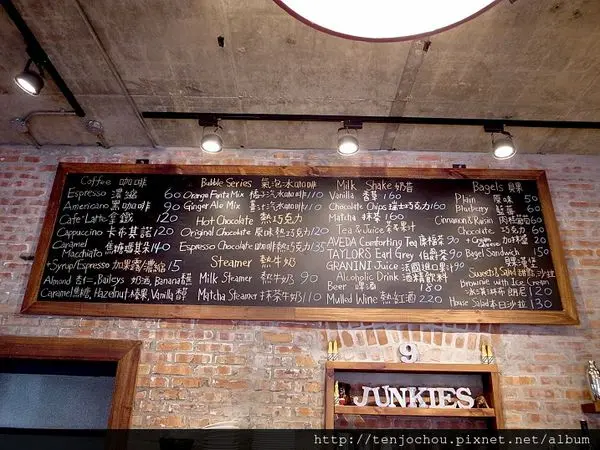 Coffee 咖啡
Espresso 濃縮 60
Americano 黑咖啡 90
Cafe Latte 拿鐵 120
Cappuccino 卡布其諾 120
Caramel Macchiato 焦糖瑪其朵 140
+Syrup/Espresso 加果露/濃縮 15
Almond 杏仁, Baileys 奶酒, Banana
Caramel 焦糖, Hazelnut 榛果, Vanilla
Bubble Series 氣泡冰咖啡
Orange Fanta Mix 橘子汽水咖啡 110
Ginger Ale Mix 薑汁汽水咖啡 110
Hot Chocolate 熱巧克力
Original Chocolate 原味熱巧克力 120
Espresso Chocolate 咖啡熱巧克力 135
Steamer 熱牛奶
Milk Steamer 熱牛奶 90
Matcha Steamer 抹茶熱牛奶 110
Milk Shake 奶昔
Vanilla 香草 160
Chocolate Chips 瑞士巧克力 160
Matcha 抹茶 160
Tea & Juice 茶&果汁
AVEDA Comforting Tea 90
TAYLORS Earl Grey 伯爵茶 90
GRANINI Juice 法國進口果汁 90
Alcoholic Drink 酒精飲料
Beer 啤酒 180
Mulled Wine 熱紅酒 220
Bagels 貝果
Plain 原味 50
Blueberry 藍莓 60
Cinnamon & Raisin 肉桂葡萄 60
Chocolate 巧克力 60
+ Cream Cheese 加抹醬 20
Bagel Session
Sweets & Salad 甜點沙拉
Brownie with Ice Cream
冰淇淋布朗尼 120
House Salad 本日沙拉 130
9
JUNKIES
http://tenjochou.pixnet.net/album